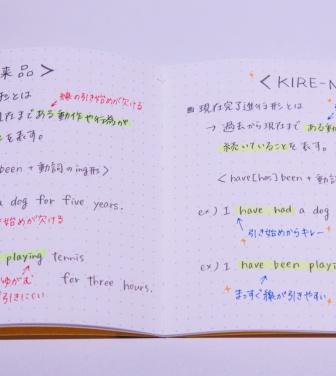 来品>
線の引き始めが欠ける
現在まである動作や行為が
を表す。
been + 動詞のing形>
a dog for five years.
始めが欠ける
playing tennis
ゆがむ
引きにくい
for three hours.
<KIRE-N
現在完了進行形とは
→ 過去から現在まで ある動
続いていることを表す。
<have[has] been + 動詞
ex) I have had a dog
引き始めからキレー
ex) I have been playi
まっすぐ線が引きやすい